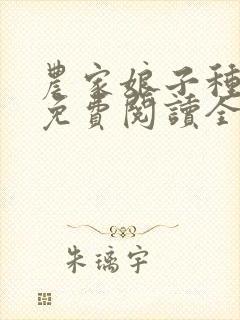 農家娘子種
免費閱讀全
朱璃宇